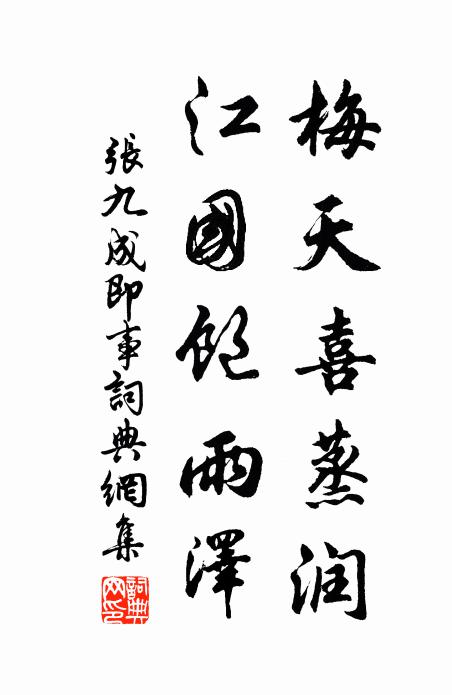 梅天喜蒸润
江國飽雨澤
張九成即事詞典網集
詞典网印